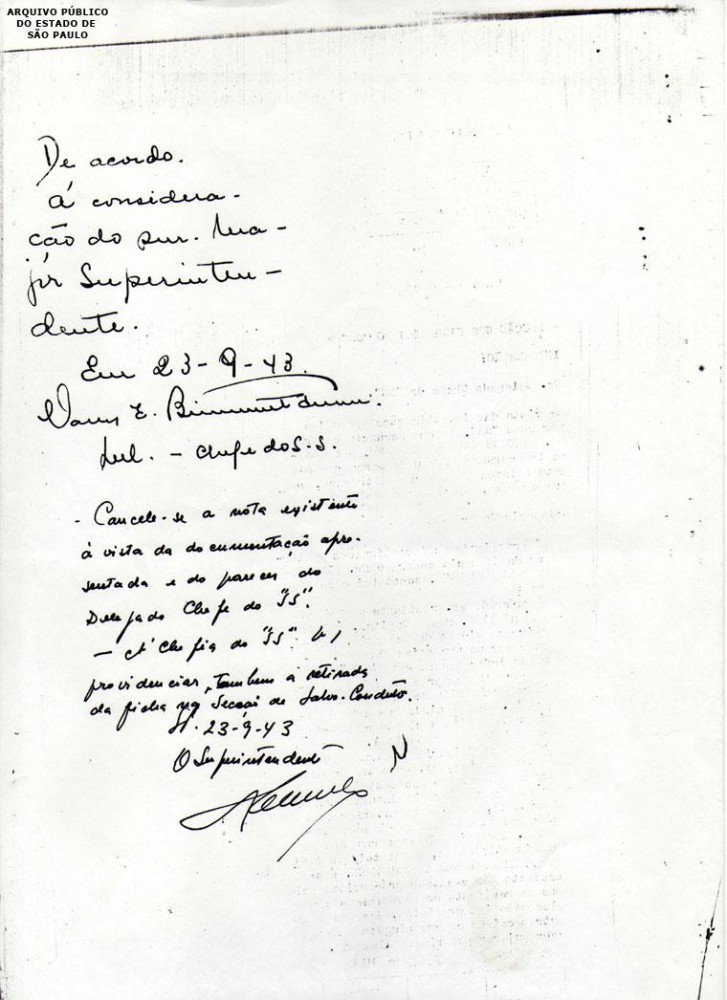 ARQUIVO PÚBLICO
DO ESTADO DE
SÃO PAULO
De acordo.
Á considera-
ção do snr. Ma-
jor Superinten-
dente.
Em 23-9-43.
E.
Del. - chefe do S.S.
- Cancele-se a nota existente
á vista da documentação apre-
sentada e do parecer do
Delegado Chefe do "SS".
- Á Chefia do "SS" p/
providenciar, tambem a retirada
da ficha na Secção de Salvo-Conduto.
23-9-43
O Superintendente